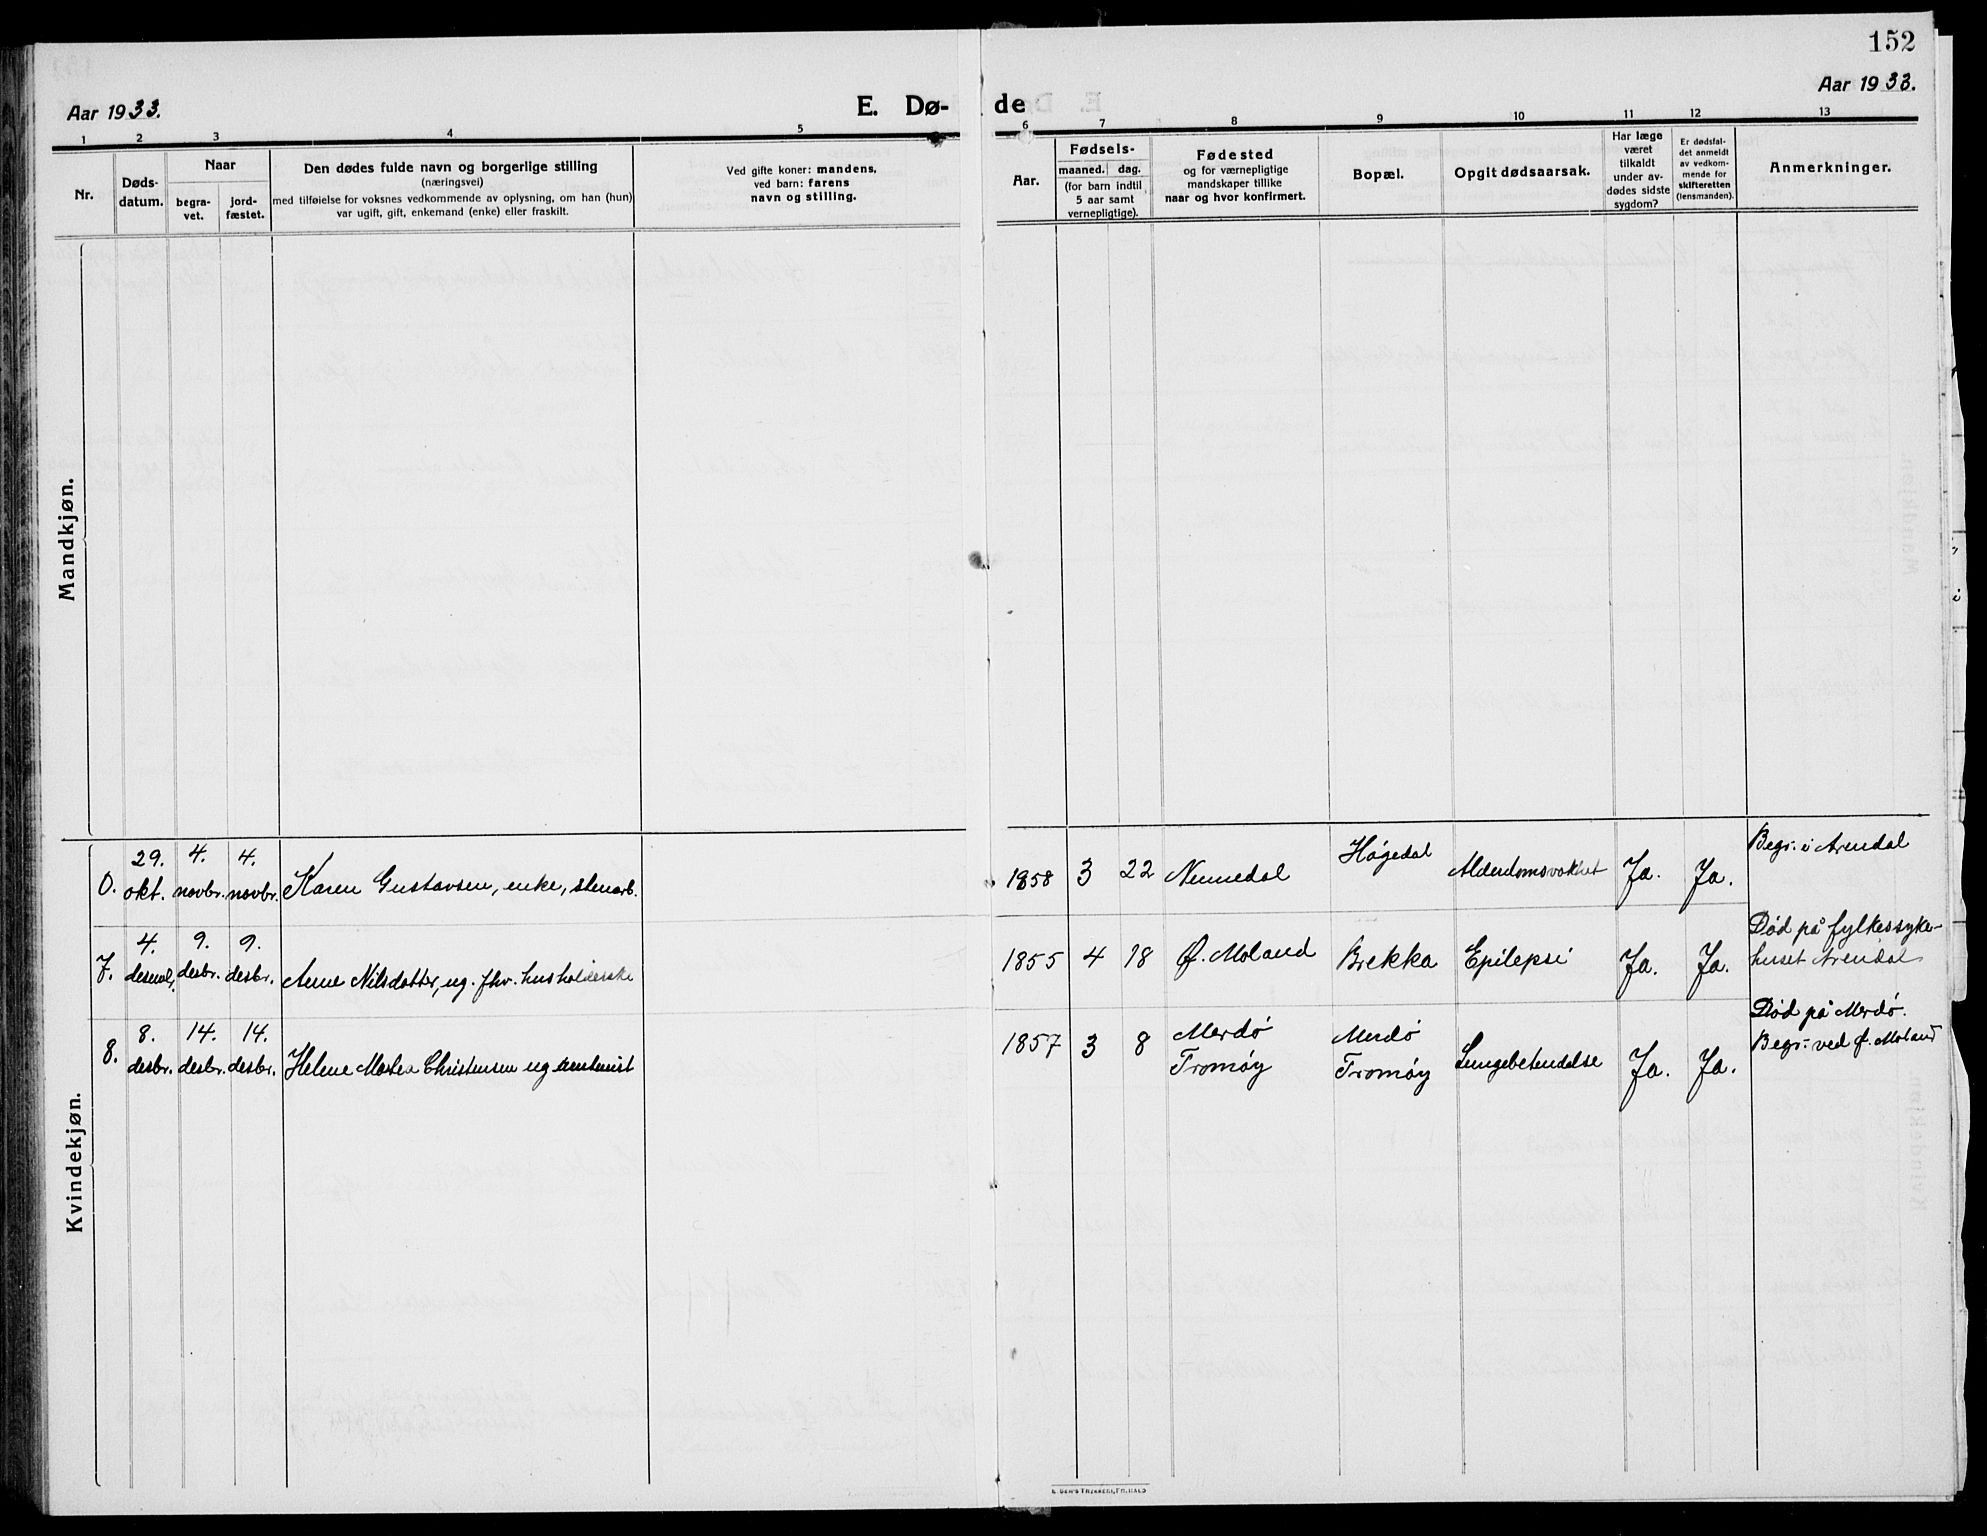 152
Aar 1933.
E. Dø-
de
Aar 1933.
1 2 3 4 5 6 7 8 9 10 11 12 13
Nr.
Døds-
datum.
Naar
begra-
vet.
jord-
fæstet.
Den dødes fulde navn og borgerlige stilling
(næringsvei)
med tilføielse for voksnes vedkommende av oplysning, om han (hun)
var ugift, gift, enkemand (enke) eller fraskilt.
Ved gifte koner: mandens,
ved barn: farens
navn og stilling.
Aar.
Fødsels-
maaned. dag.
(for barn indtil
5 aar samt
vernepligtige).
Fødested
og for værnepligtige
mandskaper tillike
naar og hvor konfirmert.
Bopæl.
Opgit dødsaarsak.
Har læge
været
tilkaldt
under av-
dødes sidste
sygdom?
Er dødsfal-
det anmeldt
av vedkom-
mende for
skifteretten
(lensmanden).
Anmerkninger.
Mandkjøn.
Kvindekjøn.
29. 4. 4. Høgedal Begr. i Arendal
okt. novbr. novbr. Karen Gustavsen, enke, stenarb. 1858 3 22 Alderdomsvakhet Ja. Ja.
4. 9. 9. Død på fylkessyke-
7. desbr. desbr. Anne Nilsdatter, ug. fhv. husholderske 1855 4 18 Ø. Moland Brekka Epilepsi Ja. Ja. huset Arendal
8. 14. 14. Merdø Merdø Død på Merdø.
8. desbr. desbr. desbr. Helene Christensen ug 1857 3 8 Tromøy Tromøy Lungebetendelse Ja. Ja. Begr. ved Ø. Moland